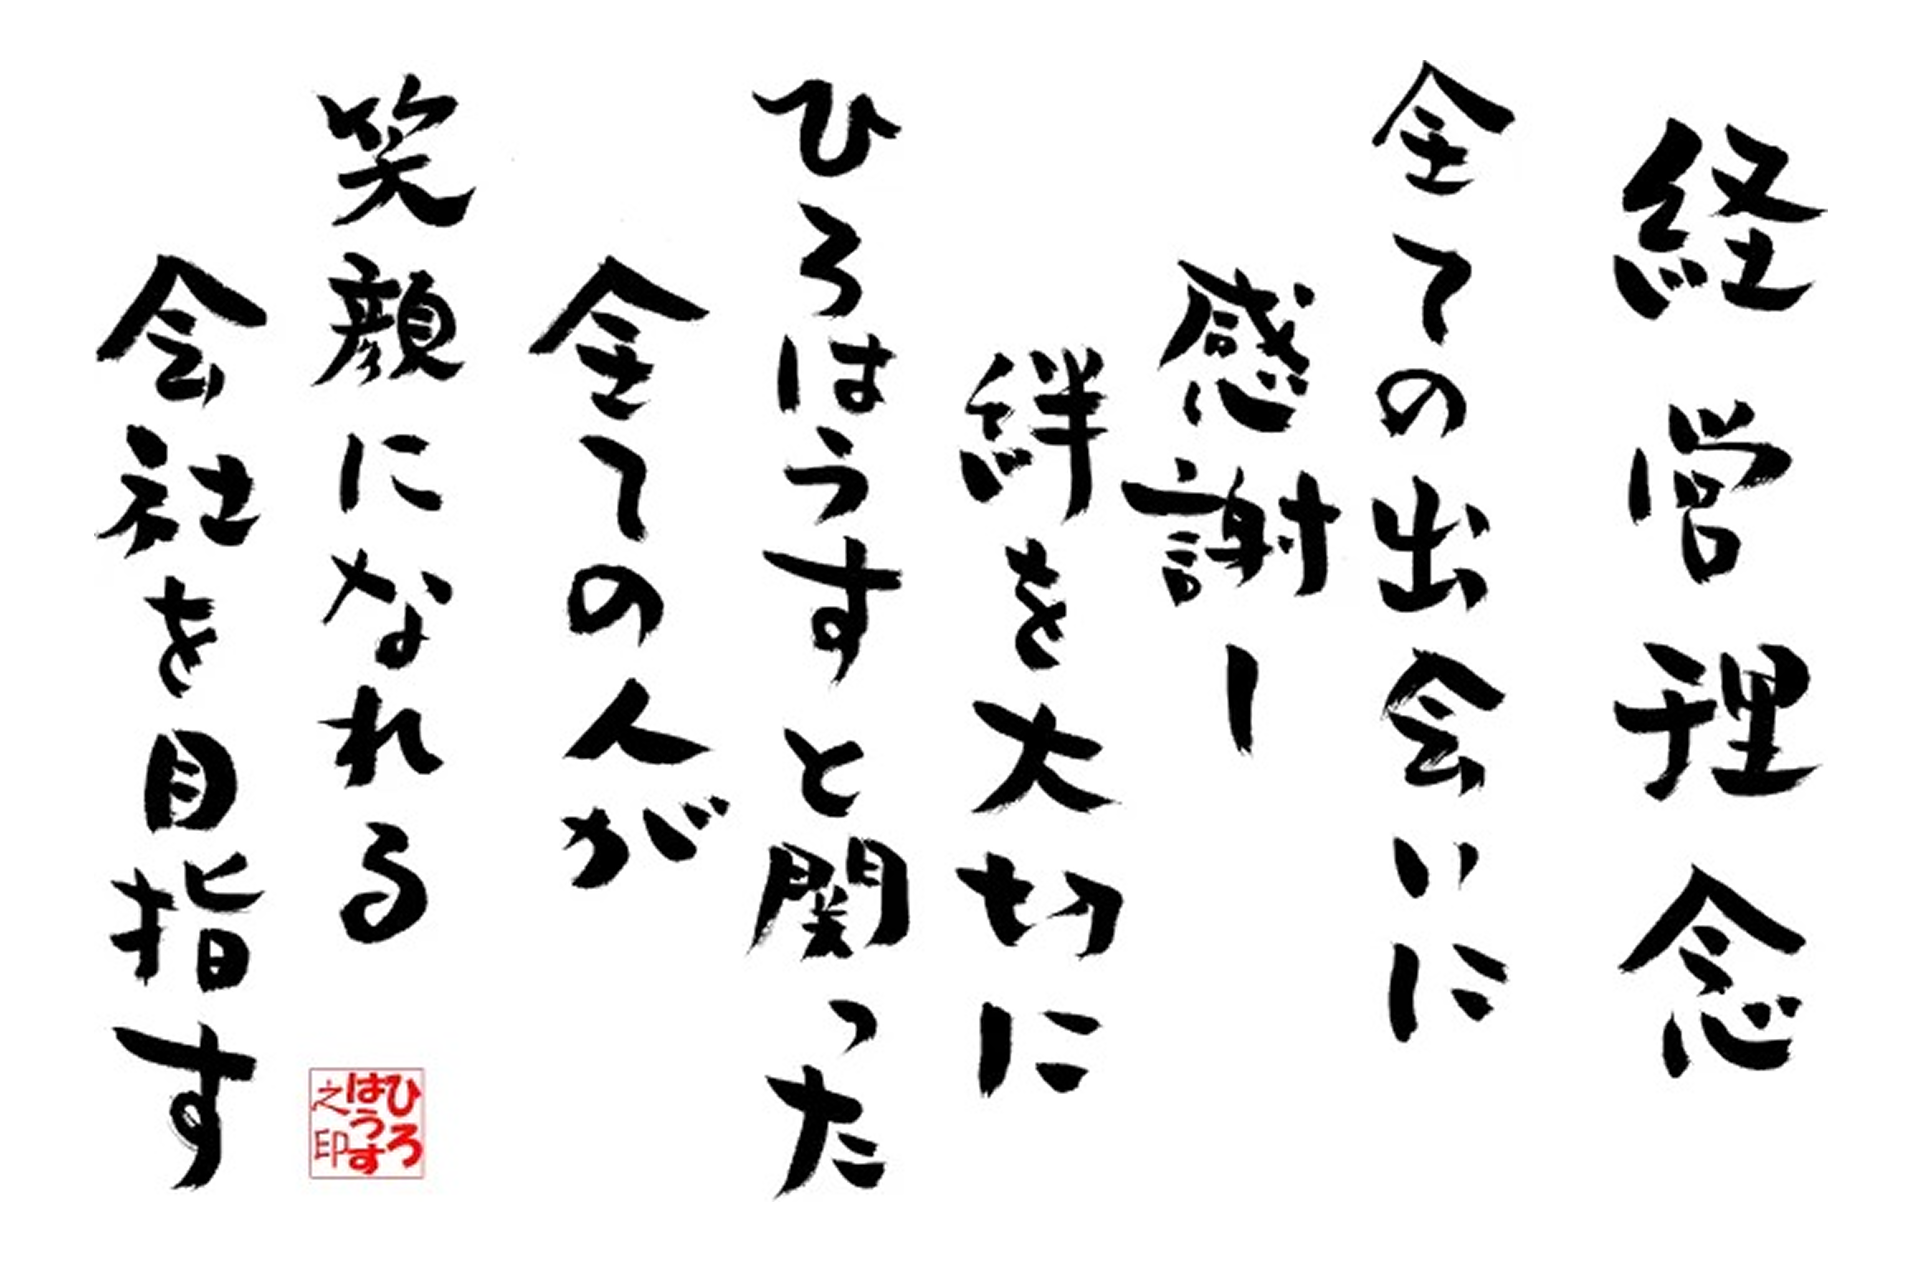 経営理念
全ての出会いに
感謝し
絆を大切に
ひろはうすと関った
全ての人が
笑顔になれる
会社を目指す
ひろ
はうす
之印